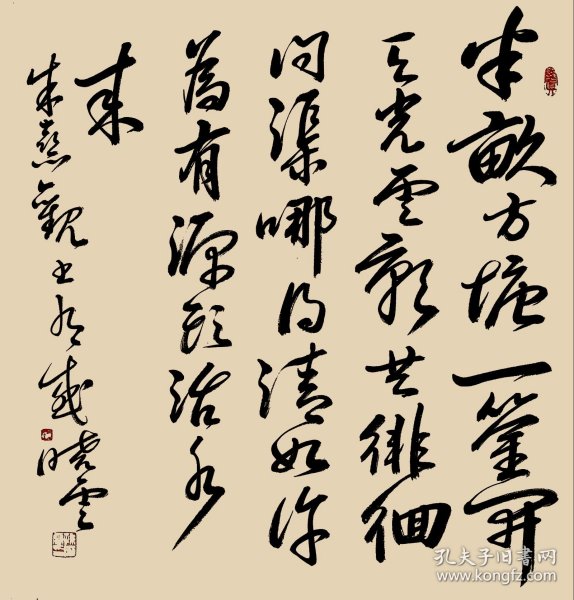 半畝方塘一鑒開
天光雲影共徘徊
問渠哪得清如許
為有源頭活水
來
朱熹觀書有感 曉雲
孔夫子旧书网
www.kongfz.com